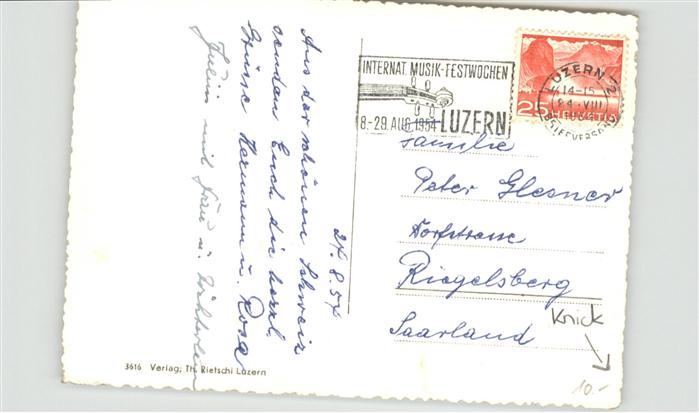 Aus der schönen Schweiz
senden Euch die herzl.
Grüsse Hermann u. Rosa
Julius mit Frau u. Töchterlein
24.8.54
3616 Verlag; Th. Rietschi Luzern
INTERNAT. MUSIK-FESTWOCHEN
8-29. AUG. 1954 LUZERN
LUZERN 2
14-15
24. VIII
BRIEFVERSAND
25 HELVETIA
Familie
Peter Glesner
Dorfstrasse
Riegelsberg
Saarland
Knick
10.-